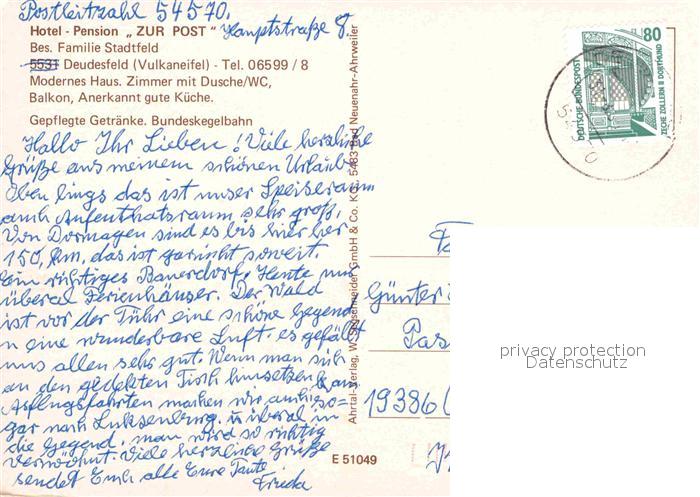 Postleitzahl 54570.
Hotel - Pension „ZUR POST" Hauptstraße 8.
Bes. Familie Stadtfeld
5531 Deudesfeld (Vulkaneifel) - Tel. 06599 / 8
Modernes Haus. Zimmer mit Dusche/WC,
Balkon, Anerkannt gute Küche.
Gepflegte Getränke. Bundeskegelbahn
Hallo Ihr Lieben! Viele herzliche
Grüße aus meinem schönen Urlaub.
Oben lings das ist unser Speiseraum
auch Aufenthatsraum sehr groß.
Von Dormagen sind es bis hier her
150 km, das ist garnicht soweit.
Ein richtiges Bauerdorf. Heute nur
überal Ferienhäuser. Der Wald
ist vor der Tühr eine schöne Gegend
n eine wunderbare Luft. es gefällt
uns allen sehr gut. Wenn man sich
an den gedekten Tisch hinsetzen kan
Asflugsfahrten machen wir auch so=
gar nach Luksenburg. u überal in
die Gegend. man wird so richtig
verwöhnt. Viele herzliche Grüße
sendet Euch alle Eure Tante
Frieda
Ahrtal-Verlag, W. Sebschneider GmbH & Co. KG, 5483 Bad Neuenahr-Ahrweiler
E 51049
80
DEUTSCHE BUNDESPOST
ZECHE ZOLLERN II DORTMUND
Günter
Pas
19386
privacy protection
Datenschutz